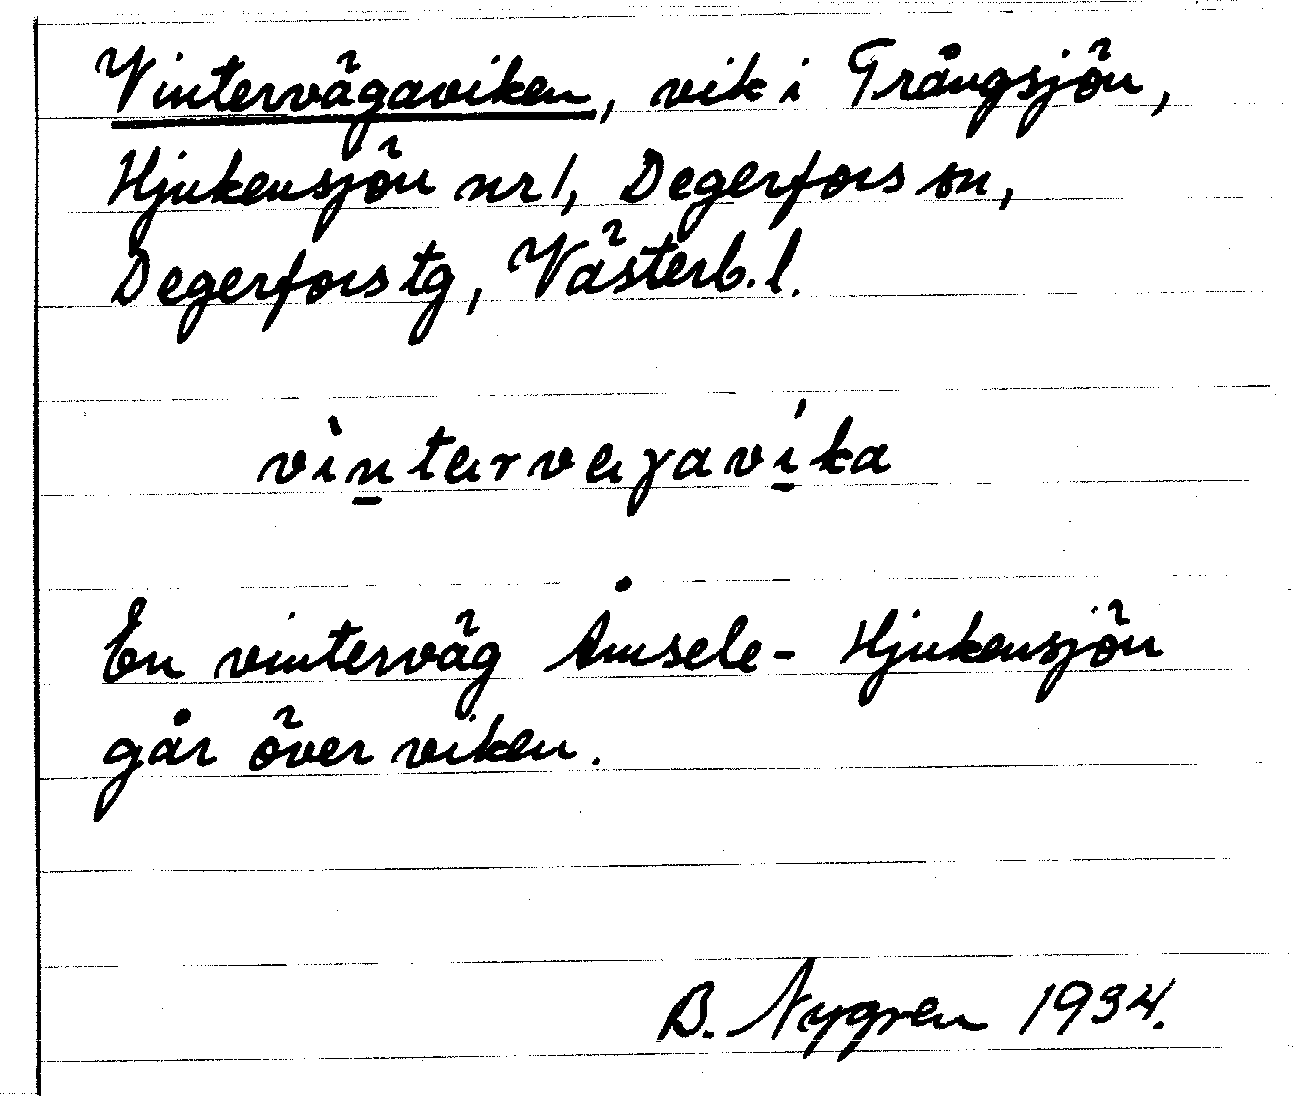 Vintervägaviken, vik i Trångsjön,
Hjukensjön nr 1, Degerfors sn,
Degerfors tg, Västerb. l.
vìn̲tervegaví̲ka
En winterväg Åmsele - Hjukensjön
går över viken.
B. Nygren 1934.